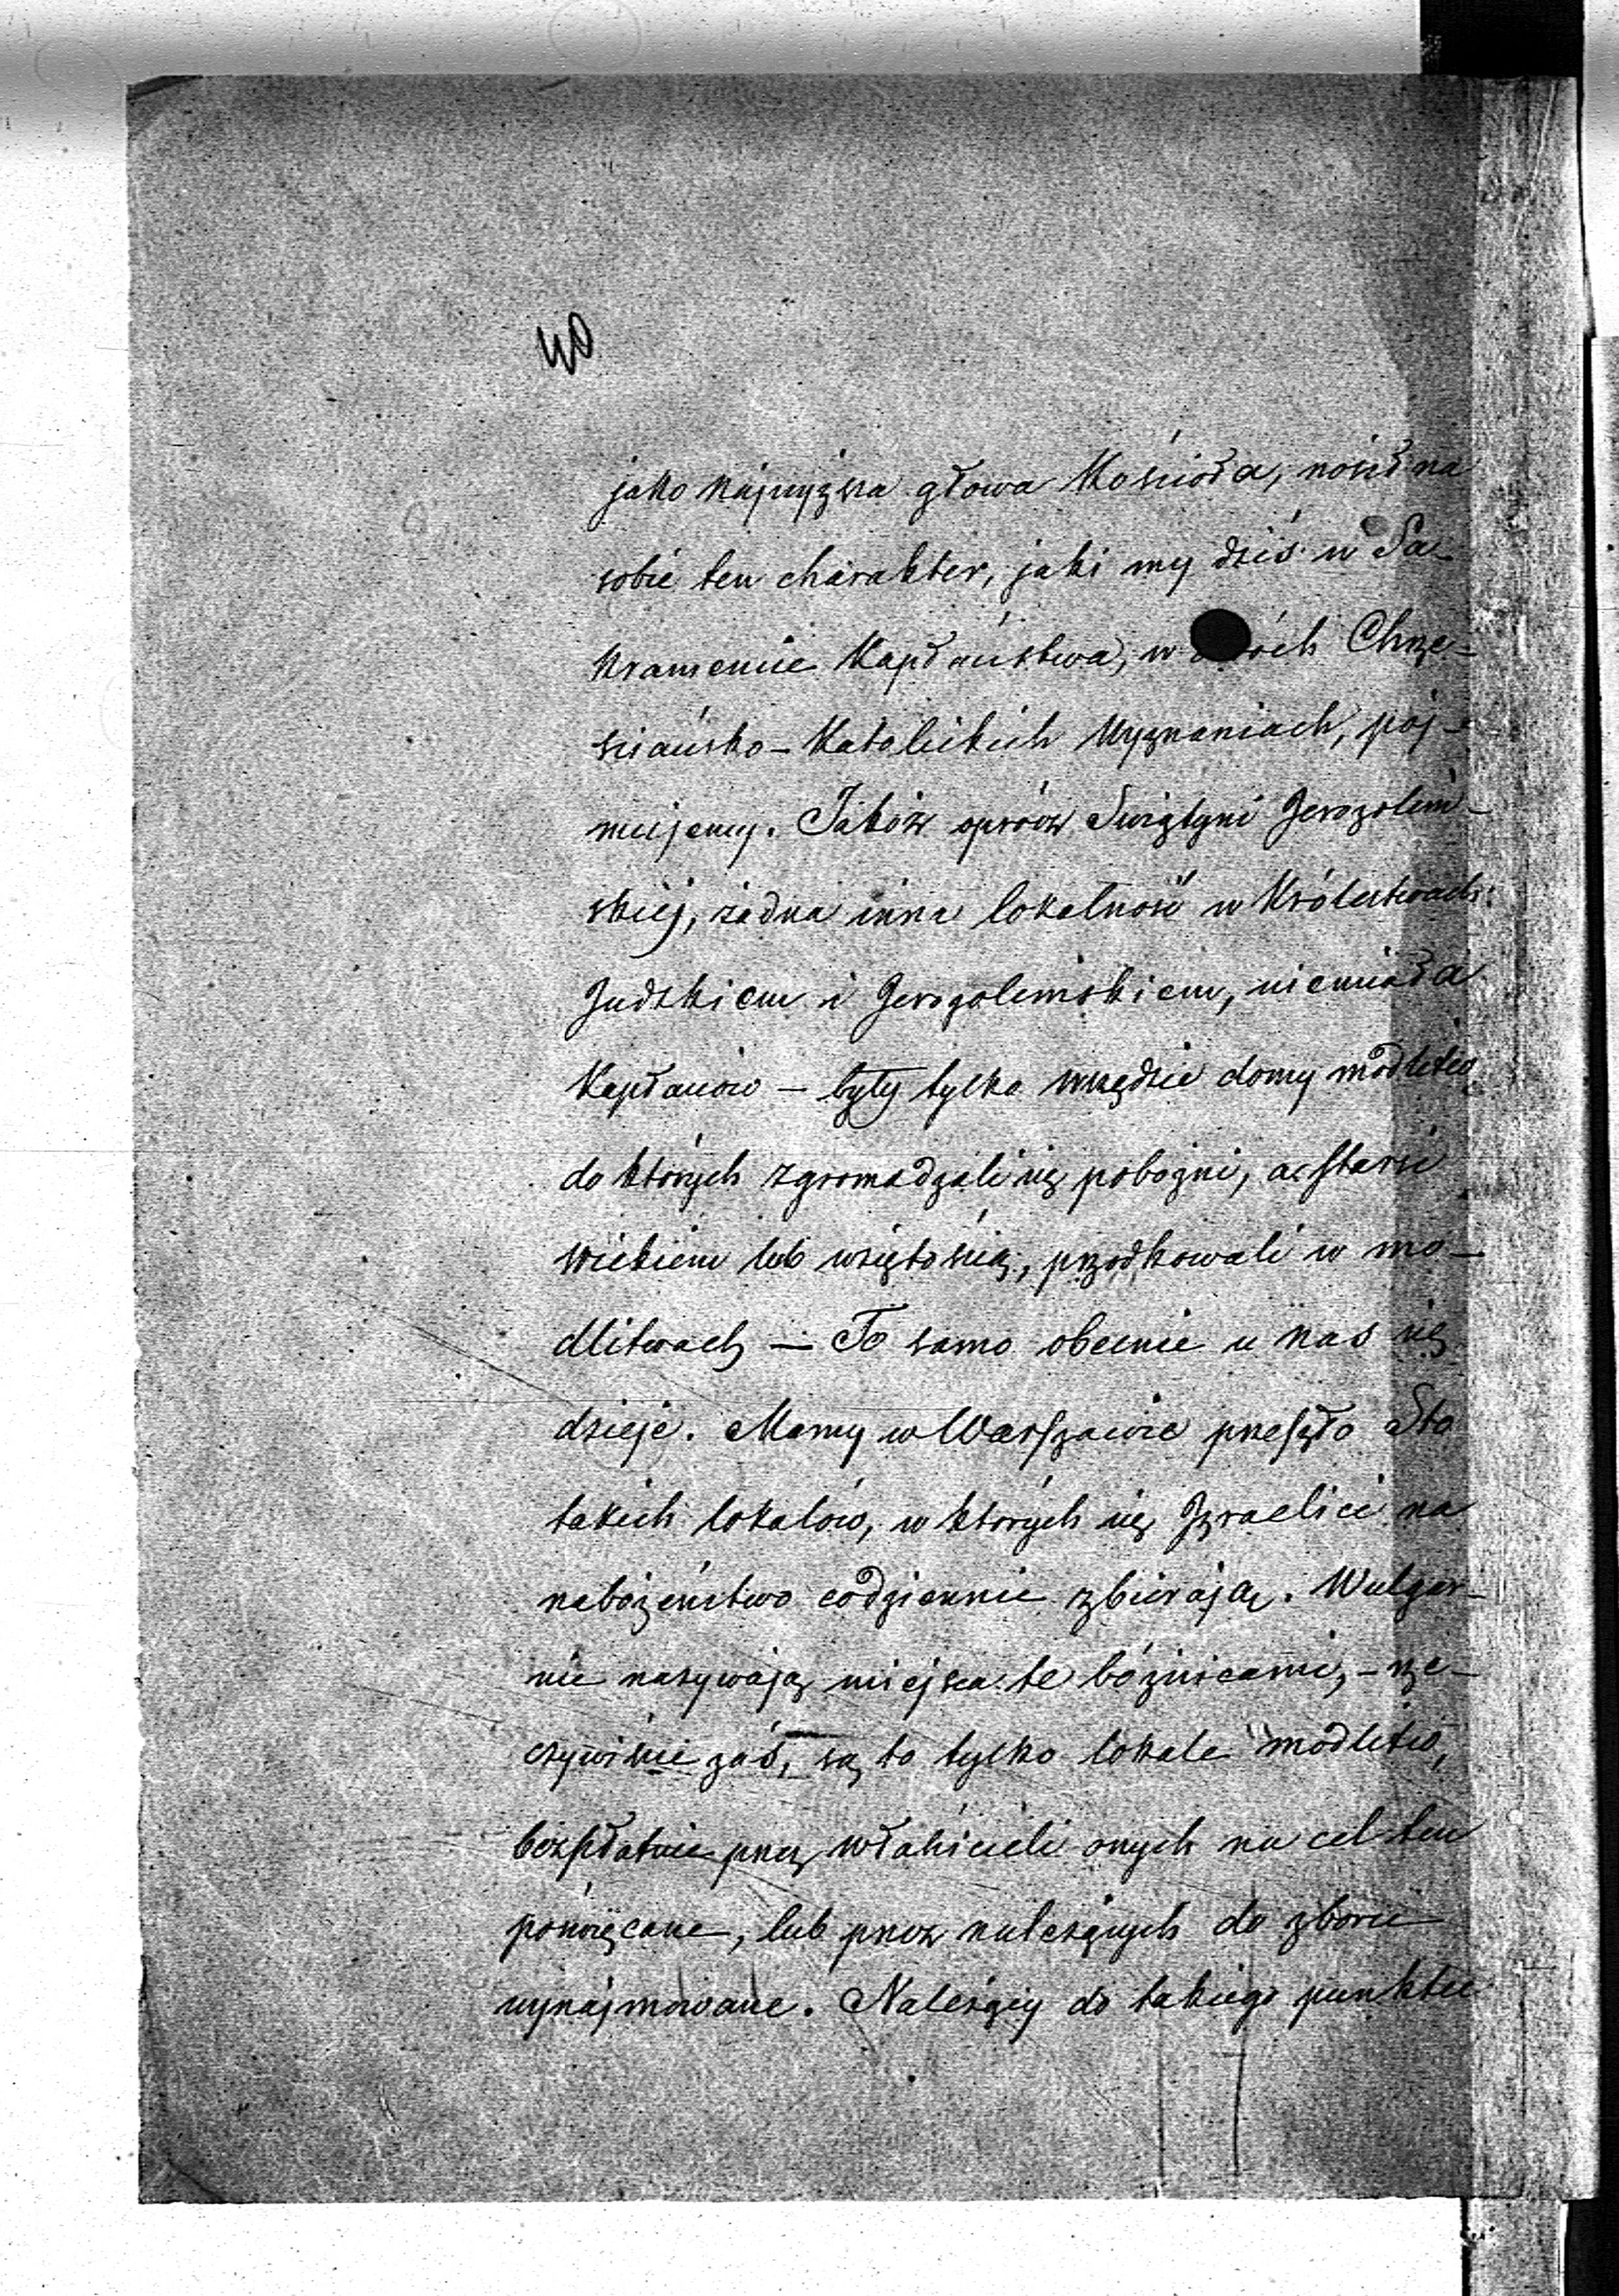 40
jako najwyższa głowa Kościoła, nosił na
sobie ten charakter, jaki my dziś w Sa-
kramencie Kapłaństwa, w Chrze-
sciańsko-Katolickich Wyznaniach, poj-
mujemy. Jakóż oprócz Swiątyni Jerozolim-
skiej, żadna inna lokalność w Królestwach:
Judzkiem i Jerozolimskiem, niemiała
Kapłanów — były tylko wszędzie domy modlitw
do których zgromadzali się pobożni, a starsi
wiekiem lub wziętością, przodkowali w mo-
dlitwach — To samo obecnie u nas się
dzieje. Mamy w Warszawie przeszło Sto
takich lokalów, w których się Izraelici na
nabożeństwo codziennie zbierają. Wulgar-
nie nazywają miejsca te bóżnicami, - rze-
czywiście zaś, są to tylko lokale modlitw,
bezpłatnie przez właścicieli onych na cel ten
poświęcane, lub przez należących do zboru
wynajmowane. Należący do takiego punktu